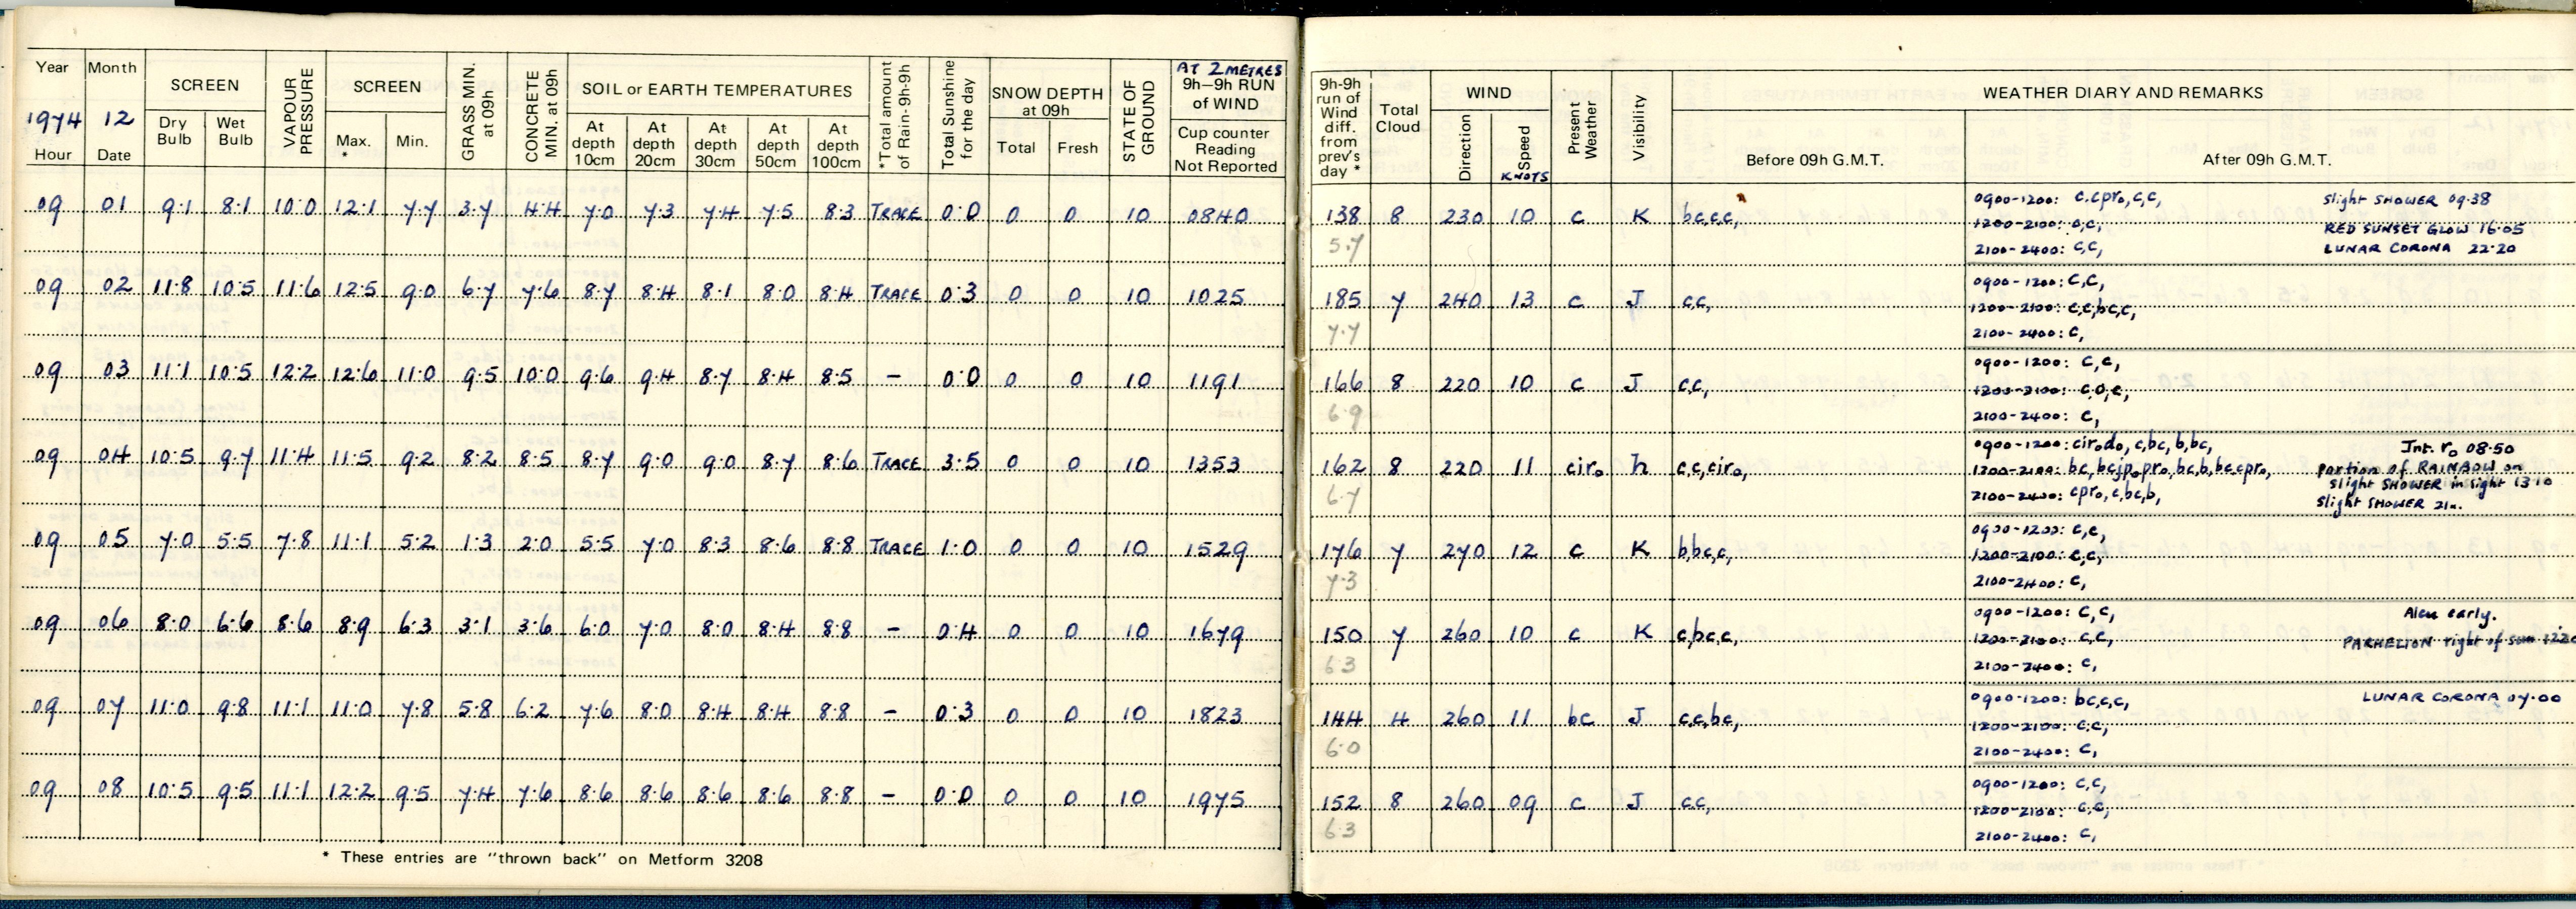 Year Month SCREEN VAPOUR PRESSURE SCREEN GRASS MIN. at 09h CONCRETE MIN. at 09h SOIL or EARTH TEMPERATURES *Total amount of Rain-9h-9h Total Sunshine for the day SNOW DEPTH at 09h STATE OF GROUND AT 2 METRES 9h—9h RUN of WIND
1974 12 Dry Bulb Wet Bulb Max. * Min. At depth 10cm At depth 20cm At depth 30cm At depth 50cm At depth 100cm Total Fresh Cup counter Reading Not Reported
Hour Date
09 01 9.1 8.1 10.0 12.1 7.7 3.7 4.4 7.0 7.3 7.4 7.5 8.3 TRACE 0.0 0 0 10 0840
09 02 11.8 10.5 11.6 12.5 9.0 6.7 7.6 8.7 8.4 8.1 8.0 8.4 TRACE 0.3 0 0 10 1025
09 03 11.1 10.5 12.2 12.6 11.0 9.5 10.0 9.6 9.4 8.7 8.4 8.5 – 0.0 0 0 10 1191
09 04 10.5 9.7 11.4 11.5 9.2 8.2 8.5 8.7 9.0 9.0 8.7 8.6 TRACE 3.5 0 0 10 1353
09 05 7.0 5.5 7.8 11.1 5.2 1.3 2.0 5.5 7.0 8.3 8.6 8.8 TRACE 1.0 0 0 10 1529
09 06 8.0 6.6 8.6 8.9 6.3 3.1 3.6 6.0 7.0 8.0 8.4 8.8 – 0.4 0 0 10 1679
09 07 11.0 9.8 11.1 11.0 7.8 5.8 6.2 7.6 8.0 8.4 8.4 8.8 – 0.3 0 0 10 1823
09 08 10.5 9.5 11.1 12.2 9.5 7.4 7.6 8.6 8.6 8.6 8.6 8.8 – 0.0 0 0 10 1975
* These entries are "thrown back" on Metform 3208
9h-9h run of Wind diff. from prev's day * Total Cloud WIND Present Weather Visibility WEATHER DIARY AND REMARKS
Direction Speed KNOTS Before 09h G.M.T. After 09h G.M.T.
138 8 230 10 c K bc,c,c, 0900-1200: c,cpr₀,c,c, slight SHOWER 09.38
5.7 1200-2100: c,c, RED SUNSET GLOW 16.05
2100-2400: c,c, LUNAR CORONA 22.20
185 7 240 13 c J c,c, 0900-1200: c,c,
7.7 1200-2100: c,c,bc,c,
2100-2400: c,
166 8 220 10 c J c,c, 0900-1200: c,c,
6.9 1200-2100: c,o,c,
2100-2400: c,
162 8 220 11 cir₀ h c,c,cir₀, 0900-1200: cir₀d₀, c,bc, b,bc, Int. r₀ 08.50
6.7 1200-2100: bc, bcjp₀pr₀, bc,b,bc,cpr₀, portion of RAINBOW on
slight SHOWER in sight 13.10
2100-2400: cpr₀, c,bc,b, slight SHOWER 21..
176 7 270 12 c K b,bc,c, 0900-1200: c,c,
7.3 1200-2100: c,c,
2100-2400: c,
150 7 260 10 c K c,bc,c, 0900-1200: c,c, early.
6.3 1200-2100: c,c, PARHELION right of sun
2100-2400: c,
144 4 260 11 bc J c,c,bc, 0900-1200: bc,c,c, LUNAR CORONA 07.00
6.0 1200-2100: c,c,
2100-2400: c,
152 8 260 09 c J c,c, 0900-1200: c,c,
6.3 1200-2100: c,c,
2100-2400: c,